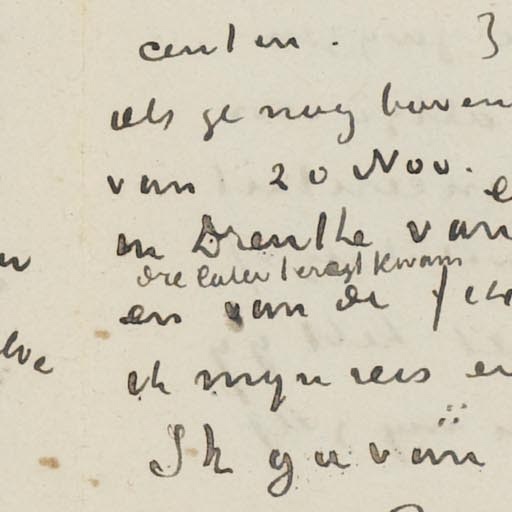 centen. 3
als ge nog boven
van 20 Nov. e
in Drenthe van
die later terugkwam
en van de
ik mijn reis en
Ik ga van